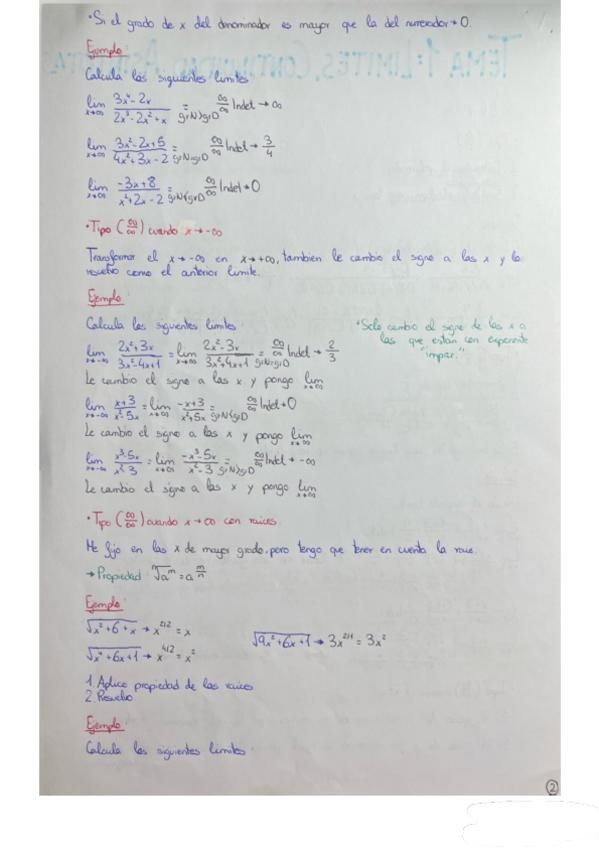 • Si el grado de x del denominador es mayor que la del numerador → 0.
Ejemplo:
Calcula los siguientes limites
lim x→∞ (3x⁴-2x)/(2x³-2x²+x) = ∞/∞ Indet → ∞ grN>grD
lim x→∞ (3x²-2x+5)/(4x²+3x-2) = ∞/∞ Indet → 3/4 grN=grD
lim x→∞ (-3x+8)/(x²+2x-2) = ∞/∞ Indet → 0 grN<grD
• Tipo (∞/∞) cuando x→-∞
Transformar el x→-∞ en x→+∞, tambien le cambio el signo a las x y lo
resuelvo como el anterior limite.
Ejemplo:
Calcula los siguientes limites
* Solo cambio el signo de las x a
las que estan con exponente
"impar."
lim x→-∞ (2x²+3x)/(3x²-4x+1) = lim x→∞ (2x²-3x)/(3x²+4x+1) = ∞/∞ Indet → 2/3 grN=grD
Le cambio el signo a las x y pongo lim x→∞
lim x→-∞ (x+3)/(x²-5x) = lim x→∞ (-x+3)/(x²+5x) = ∞/∞ Indet → 0 grN<grD
Le cambio el signo a las x y pongo lim x→∞
lim x→-∞ (x³5x)/(x²-3) = lim x→∞ (-x³-5x)/(x²-3) = ∞/∞ Indet → -∞ grN>grD
Le cambio el signo a las x y pongo lim x→∞
• Tipo (∞/∞) cuando x→∞ con raices.
Me fijo en las x de mayor grado, pero tengo que tener en cuenta la raiz.
→ Propiedad ⁿ√aᵐ = a^(m/n)
Ejemplo:
√(x²+6+x) → x^(2/2) = x
√(9x²+6x+1) → 3x^(2/1) = 3x²
√(x⁴+6x+1) → x^(4/2) = x²
1. Aplico propiedad de las raices
2. Resuelvo.
Ejemplo:
Calcula los siguientes limites.
2